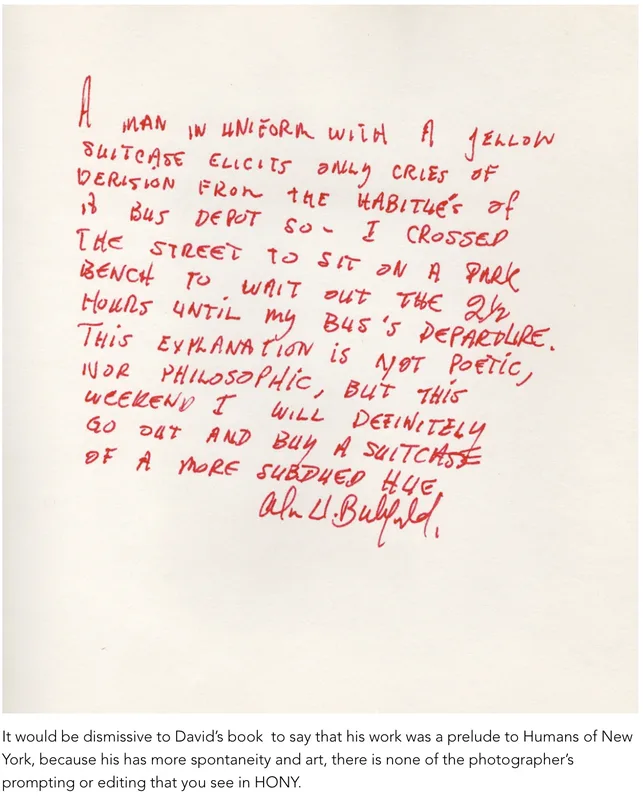 A MAN IN UNIFORM WITH A YELLOW
SUITCASE ELICITS ONLY CRIES OF
DERISION FROM THE HABITUÉ'S OF
BUS DEPOT SO - I CROSSED
THE STREET TO SIT ON A PARK
BENCH TO WAIT OUT THE 2½
HOURS UNTIL MY BUS'S DEPARTURE.
THIS EXPLANATION IS NOT POETIC,
NOR PHILOSOPHIC, BUT THIS
WEEKEND I WILL DEFINITELY
GO OUT AND BUY A SUITCASE
OF A MORE SUBDUED HUE.
It would be dismissive to David's book to say that his work was a prelude to Humans of New
York, because his has more spontaneity and art, there is none of the photographer's
prompting or editing that you see in HONY.